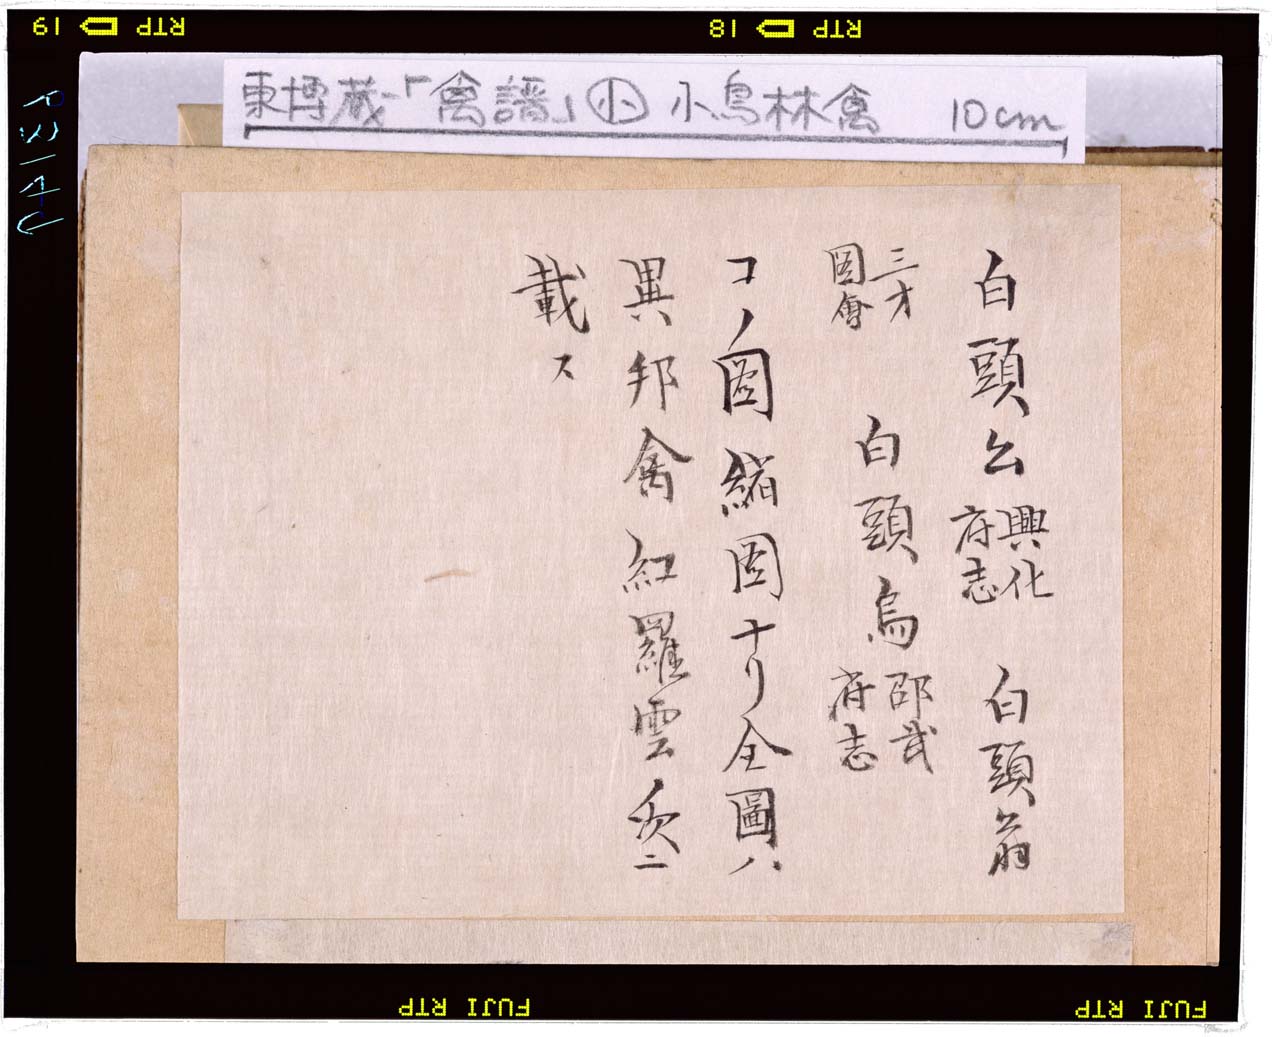 東博蔵-「禽譜」㊤ 小鳥林禽 10cm
白頭公 興化府志 白頭翁
三才圖會 白頭烏 邵武府志
コノ圖縮圖ナリ全圖ハ
異邦禽紅羅雲
載ス
19 RTP
18 RTP
FUJI RTP
FUJI RTP